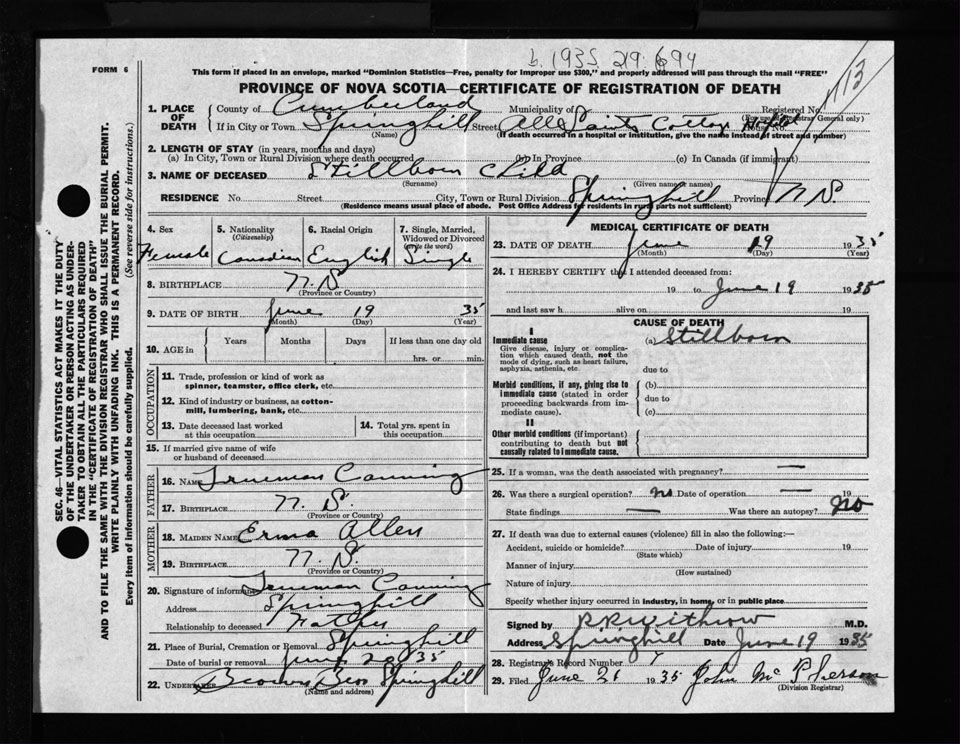 b. 1935. 219. 694
113
FORM 6
This form if placed in an envelope, marked "Dominion Statistics—Free, penalty for improper use $300," and properly addressed will pass through the mail "FREE"
PROVINCE OF NOVA SCOTIA—CERTIFICATE OF REGISTRATION OF DEATH
1. PLACE OF DEATH
County of Cumberland Municipality of Registered No.
(For use of Registrar General only)
If in City or Town Springhill Street All Saints Cottage Hosptl House No.
(Name) (If death occurred in a hospital or institution, give the name instead of street and number)
2. LENGTH OF STAY (in years, months and days)
(a) In City, Town or Rural Division where death occurred (b) In Province (c) In Canada (if immigrant)
3. NAME OF DECEASED Stillborn Child
(Surname) (Given name or names)
RESIDENCE No. Street City, Town or Rural Division Springhill Province N.S.
(Residence means usual place of abode. Post Office Address for residents in rural parts not sufficient)
4. Sex Female
5. Nationality (Citizenship) Canadian
6. Racial Origin English
7. Single, Married, Widowed or Divorced (Write the word) Single
8. BIRTHPLACE N.S.
(Province or Country)
9. DATE OF BIRTH June 19 35
(Month) (Day) (Year)
10. AGE in Years Months Days If less than one day old
hrs. or min.
OCCUPATION
11. Trade, profession or kind of work as spinner, teamster, office clerk, etc.
12. Kind of industry or business, as cotton-mill, lumbering, bank, etc.
13. Date deceased last worked at this occupation
14. Total yrs. spent in this occupation
15. If married give name of wife or husband of deceased
FATHER
16. NAME Trueman Canning
17. BIRTHPLACE N.S.
(Province or Country)
MOTHER
18. MAIDEN NAME Erma Allen
19. BIRTHPLACE N.S.
(Province or Country)
20. Signature of informant Trueman Canning
Address Springhill
Relationship to deceased Father
21. Place of Burial, Cremation or Removal Springhill
Date of burial or removal June 20 35
22. UNDERTAKER Browns Bros Springhill
(Name and address)
MEDICAL CERTIFICATE OF DEATH
23. DATE OF DEATH June 19 1935
(Month) (Day) (Year)
24. I HEREBY CERTIFY that I attended deceased from:
19 to June 19 1935
and last saw h alive on 19
CAUSE OF DEATH
I
Immediate cause (a) Stillborn
Give disease, injury or complication which caused death, not the mode of dying, such as heart failure, asphyxia, asthenia, etc.
due to
Morbid conditions, if any, giving rise to immediate cause (stated in order proceeding backwards from immediate cause).
(b)
due to
(c)
II
Other morbid conditions (if important) contributing to death but not causally related to immediate cause.
25. If a woman, was the death associated with pregnancy? —
26. Was there a surgical operation? no Date of operation — 19
State findings — Was there an autopsy? no
27. If death was due to external causes (violence) fill in also the following:—
Accident, suicide or homicide? Date of injury 19
(State which)
Manner of injury
(How sustained)
Nature of injury
Specify whether injury occurred in industry, in home, or in public place
Signed by R R Withrow M.D.
Address Springhill Date June 19 1935
28. Registrar's Record Number
29. Filed June 21 1935 John McPherson
(Division Registrar)
SEC. 46—VITAL STATISTICS ACT MAKES IT THE DUTY
OF THE UNDERTAKER OR PERSON ACTING AS UNDERTAKER TO OBTAIN ALL THE PARTICULARS REQUIRED
IN THE "CERTIFICATE OF REGISTRATION OF DEATH"
AND TO FILE THE SAME WITH THE DIVISION REGISTRAR WHO SHALL ISSUE THE BURIAL PERMIT.
WRITE PLAINLY WITH UNFADING INK. THIS IS A PERMANENT RECORD.
Every item of information should be carefully supplied. (See reverse side for instructions.)